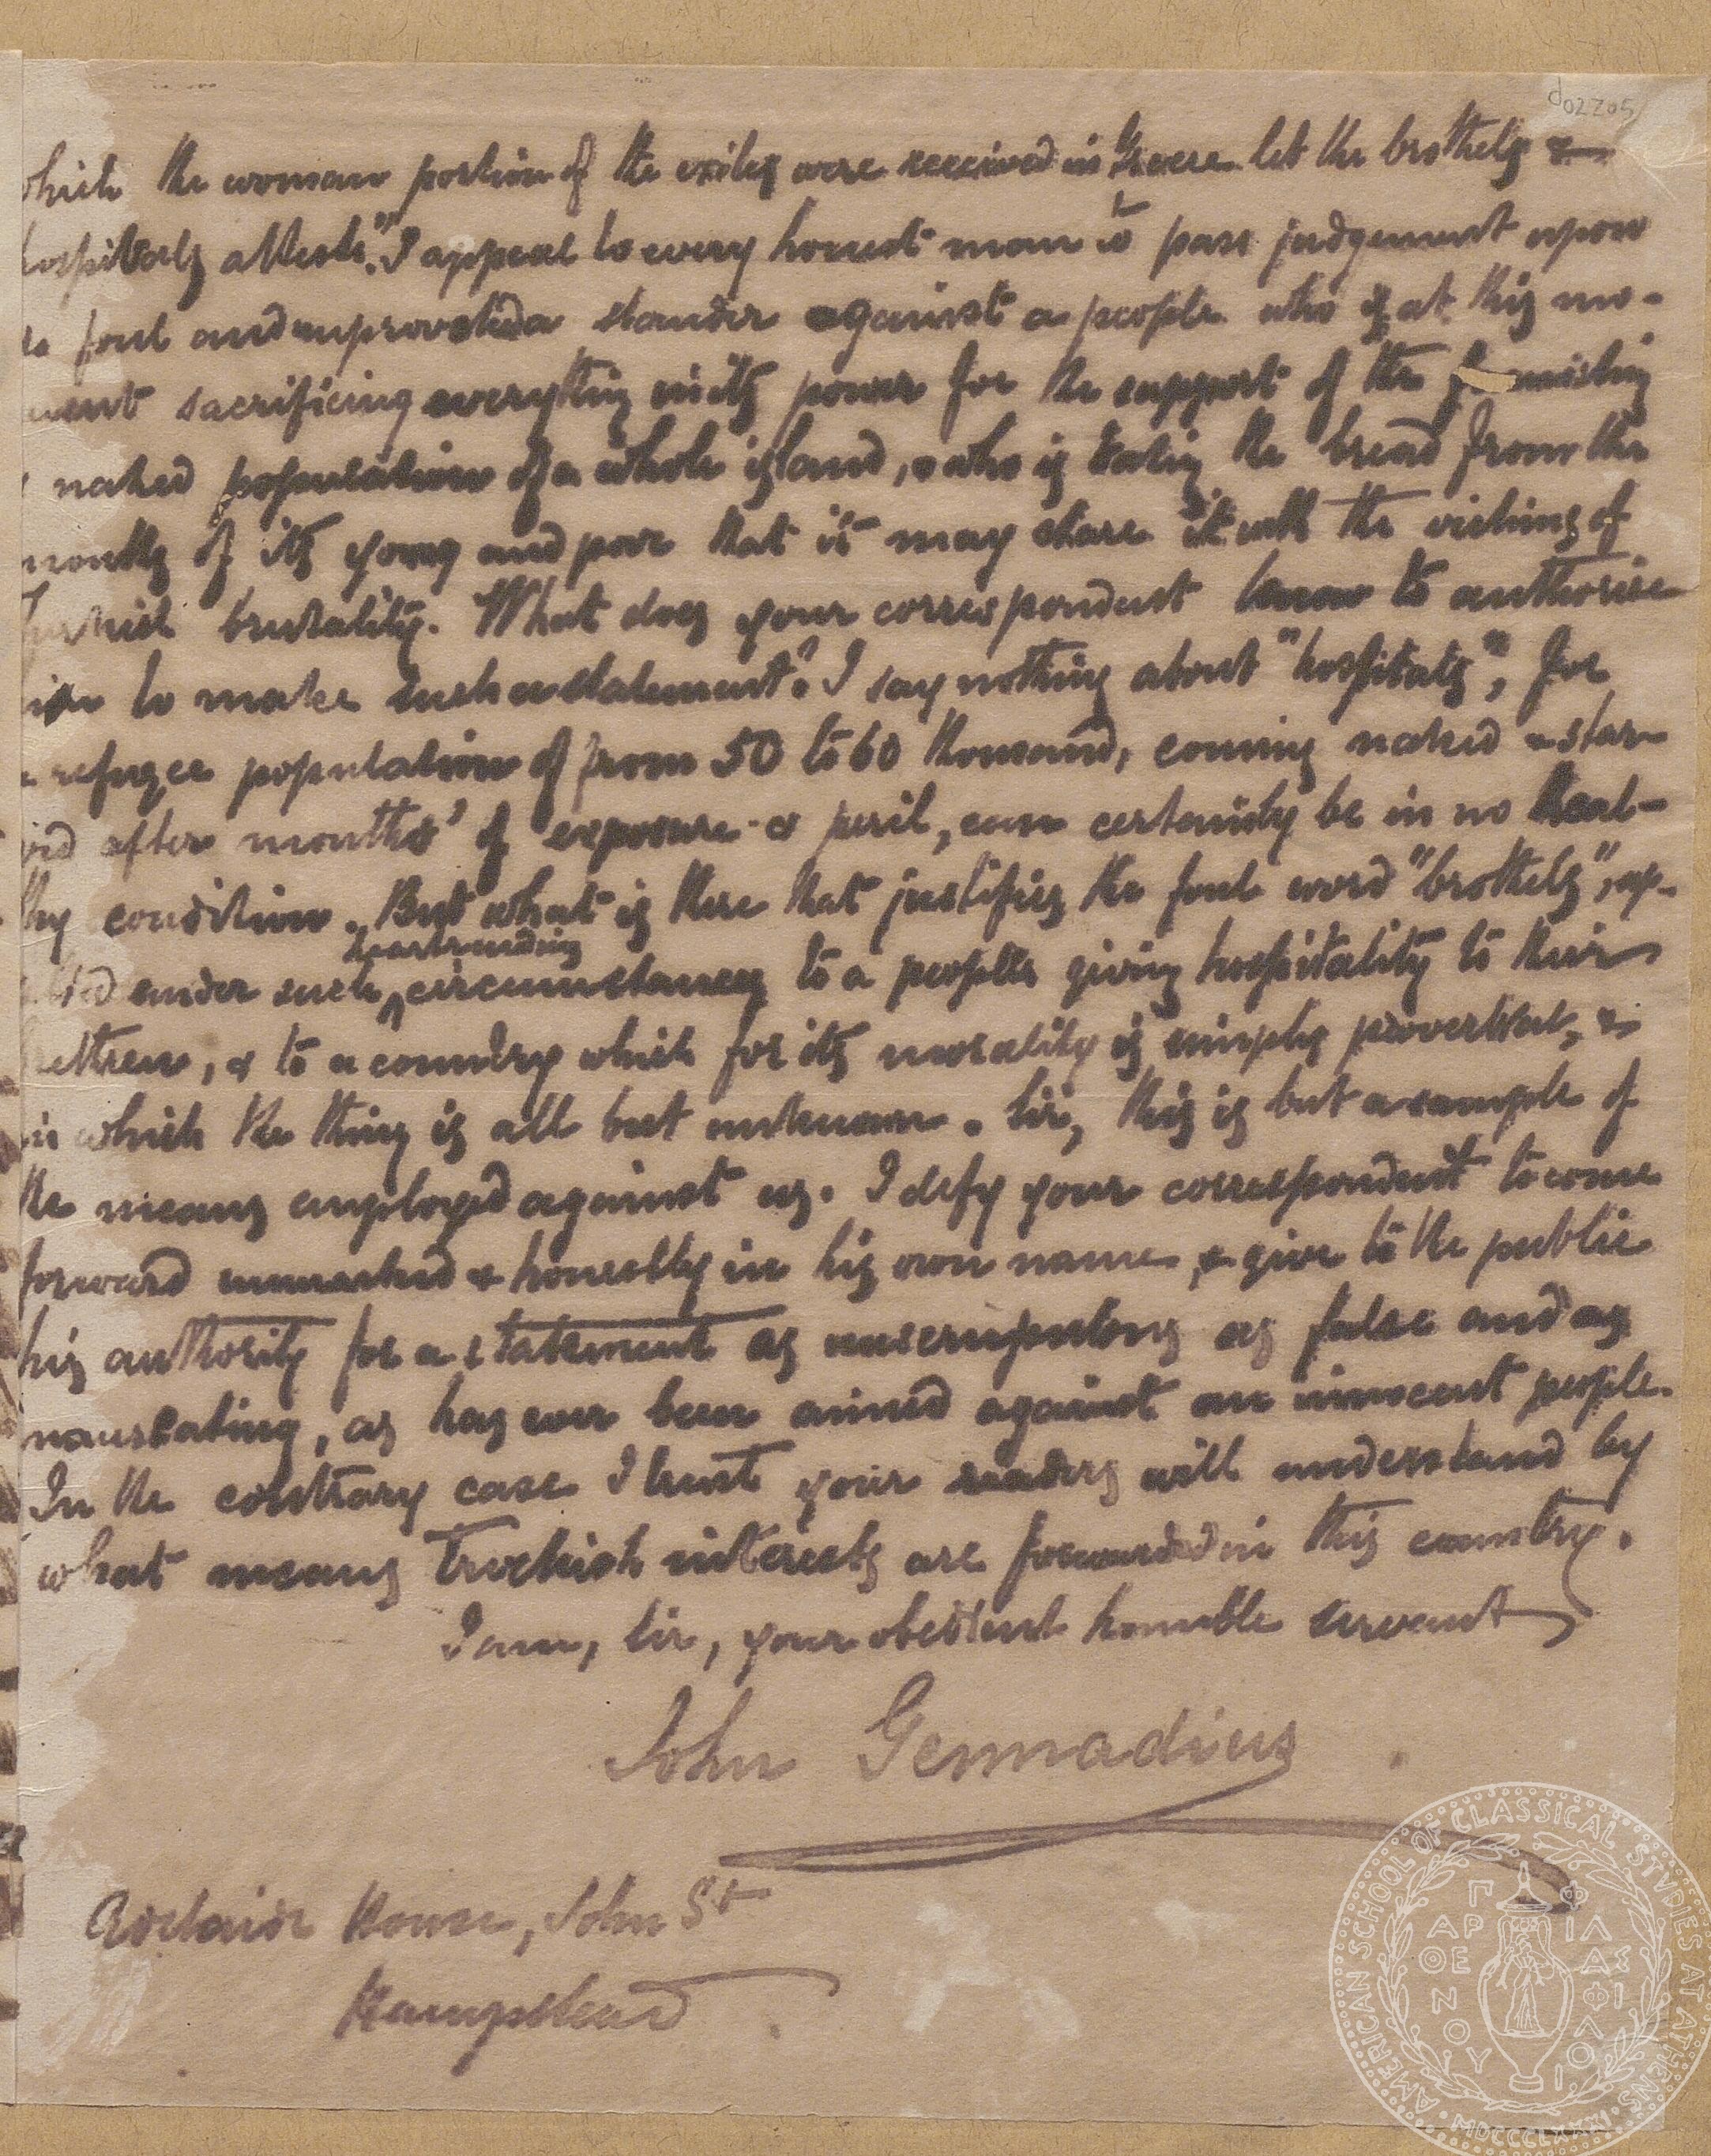 d02205
which the woman portion of the exiles were received in Greece let the brothels &
hospitals attest." I appeal to every honest man to pass judgement upon
foul and unprovoked slander against a people who is at this mo-
ment sacrificing everything in its power for the support of the famishing
naked population of a whole island, who is taking the bread from the
mouths of its young and poor that it may share it with the victims of
Turkish brutality. What does your correspondent know to authorise
him to make such a statement? I say nothing about "hospitals", for
a refugee population of from 50 to 60 thousand, coming naked & star-
ved after months' of exposure & peril, can certainly be in no heal-
thy condition. But what is there that justifies the foul word "brothels", ap-
plied under such heartrending circumstances to a people giving hospitality to their
brethren, & to a country which for its morality is simply proverbial, &
in which the thing is all but unknown. Sir, this is but a sample of
the means employed against us. I defy your correspondent to come
forward unmasked & honestly in his own name, & give to the public
his authority for a statement as unscrupulous as false and as
nauseating, as has ever been aimed against an innocent people.
In the contrary case I trust your readers will understand by
what means Truckish interests are forwarded in this country.
I am, Sir, your obedient humble servant
John Gennadius
Adelaide House, John St
Hampstead
AMERICAN SCHOOL OF CLASSICAL STUDIES AT ATHENS
MDCCCLXXXI
ΠΑΡΘΕΝΟΥ ΦΙΛΑΣ ΦΙΛΟ